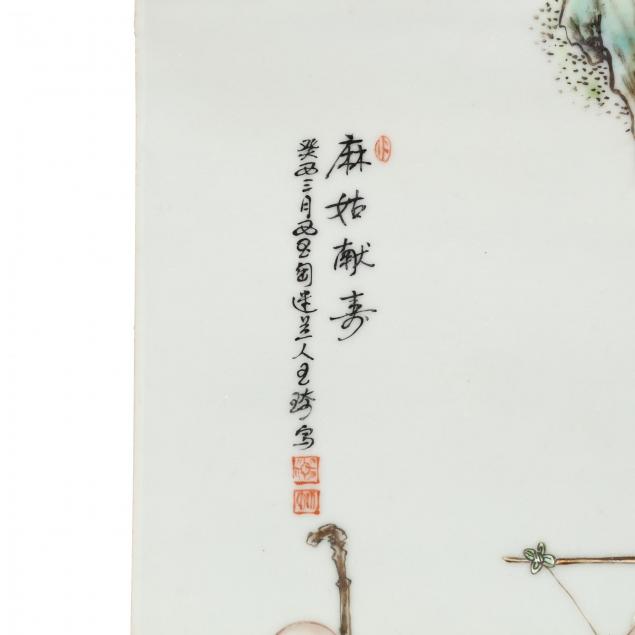 麻姑献寿
癸酉三月西昌匋迷道人王琦写